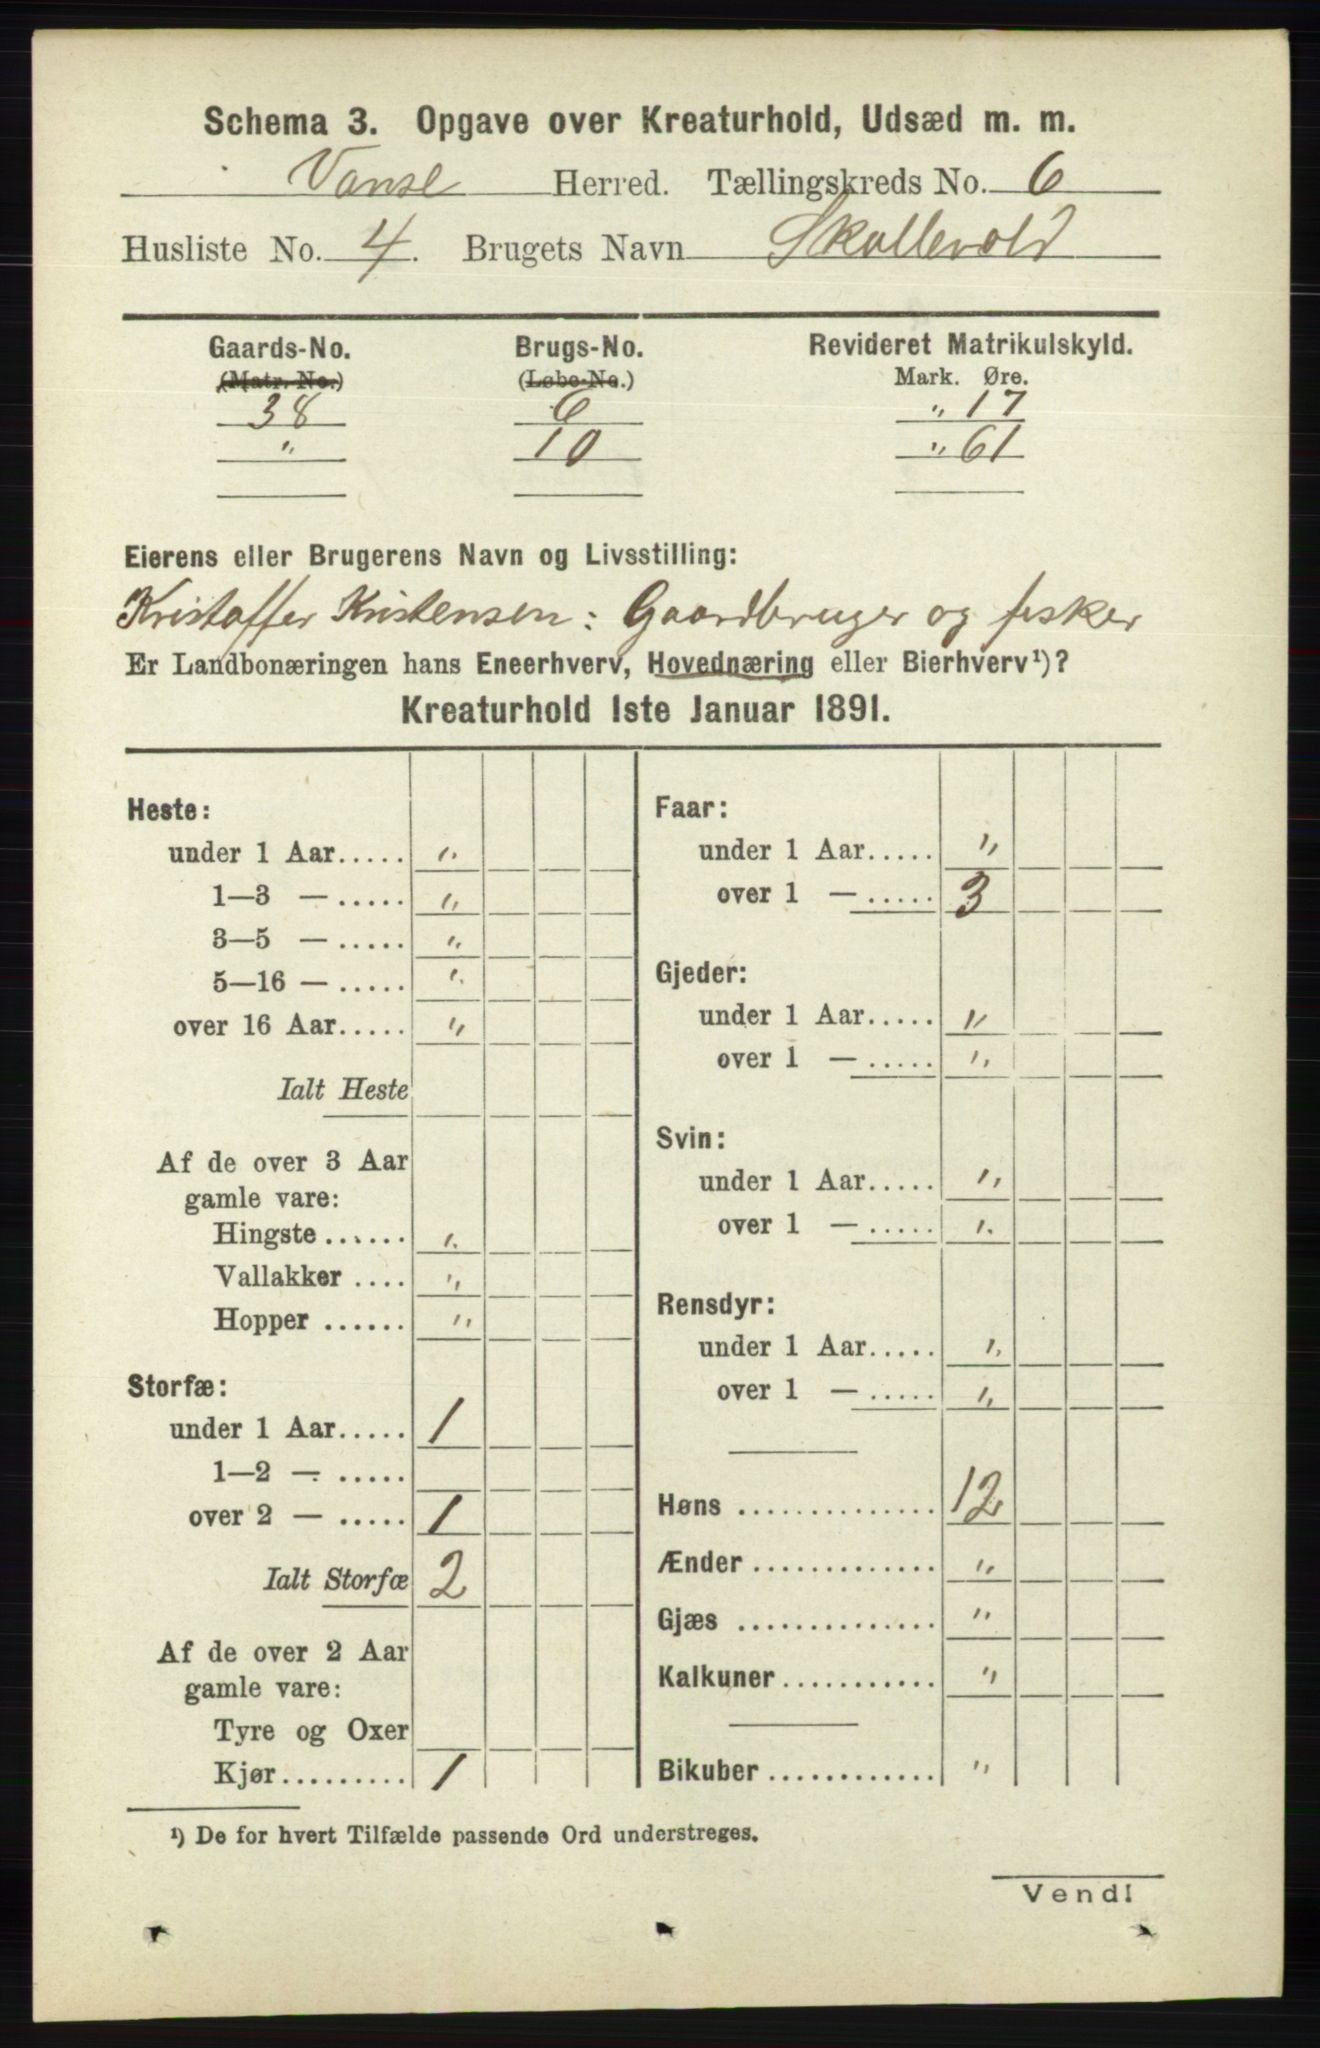 Schema 3. Opgave over Kreaturhold, Udsæd m. m.
Vanse Herred. Tællingskreds No. 6
Husliste No. 4. Brugets Navn Skollevold
Gaards-No. Brugs-No. Revideret Matrikulskyld.
(Matr. No.) (Løbe-No.) Mark. Øre.
38 6 " 17
" 10 " 61
Eierens eller Brugerens Navn og Livsstilling:
Kristoffer Kristensen: Gaardbruger og fisker
Er Landbonæringen hans Eneerhverv, Hovednæring eller Bierhverv¹)?
Kreaturhold 1ste Januar 1891.
Heste:
under 1 Aar..... "
1—3 — ..... "
3—5 — ..... "
5—16 — ..... "
over 16 Aar..... "
Ialt Heste
Af de over 3 Aar
gamle vare:
Hingste ...... "
Vallakker .... "
Hopper ...... "
Storfæ:
under 1 Aar..... 1
1—2 — .....
over 2 — ..... 1
Ialt Storfæ 2
Af de over 2 Aar
gamle vare:
Tyre og Oxer
Kjør......... 1
Faar:
under 1 Aar..... "
over 1 — ..... 3
Gjeder:
under 1 Aar..... "
over 1 — ..... "
Svin:
under 1 Aar..... "
over 1 — ..... "
Rensdyr:
under 1 Aar..... "
over 1 — ..... "
Høns .............. 12
Ænder ............. "
Gjæs .............. "
Kalkuner ........... "
Bikuber ............ "
¹) De for hvert Tilfælde passende Ord understreges.
Vend!